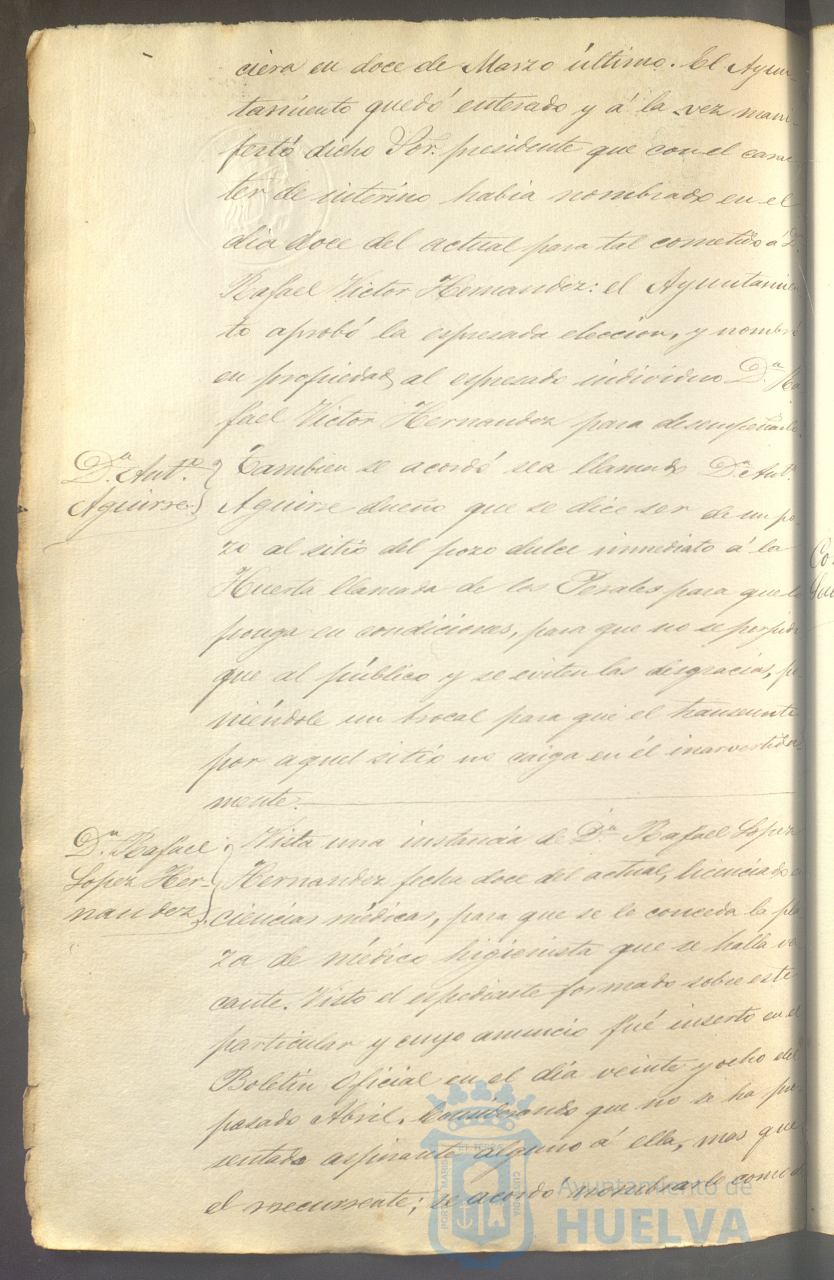 ciera en doce de Marzo último. El Ayun-
tamiento quedó enterado y á la vez mani-
festó dicho Sor. presidente que con el carac-
ter de interino habia nombrado en el
dia doce del actual para tal cometido á D.
Rafael Victor Hernandez: el Ayuntamien-
to aprobó la espresada eleccion, y nombró
en propiedad al espresado individuo Dn. Ra-
fael Victor Hernandez para desempeñarlo.
Dn. Antº.
Aguirre.
Tambien se acordó sea llamado Dn. Antº.
Aguirre dueño que se dice ser de un po-
zo al sitio del pozo dulce inmediato á la
Huerta llamada de los Perales para que lo
ponga en condiciones, para que no se perjudi-
que al público y se eviten las desgracias, po-
niéndole un brocal para que el transeunte
por aquel sitio no caiga en él inarvertida-
mente.
Dn. Rafael
Lopez Her-
nandez.
Vista una instancia de Dn. Rafael Lopez
Hernandez fecha doce del actual, licenciado en
ciencias médicas, para que se le conceda la pla-
za de médico higienista que se halla va-
cante. Visto el espediente formado sobre este
particular y cuyo anuncio fué inserto en el
Boletin Oficial en el dia veinte y ocho del
pasado Abril. Considerando que no se ha pre-
sentado aspirante alguno á ella, mas que
el recurrente; se acordó nombrarle como
Ayuntamiento de
HUELVA